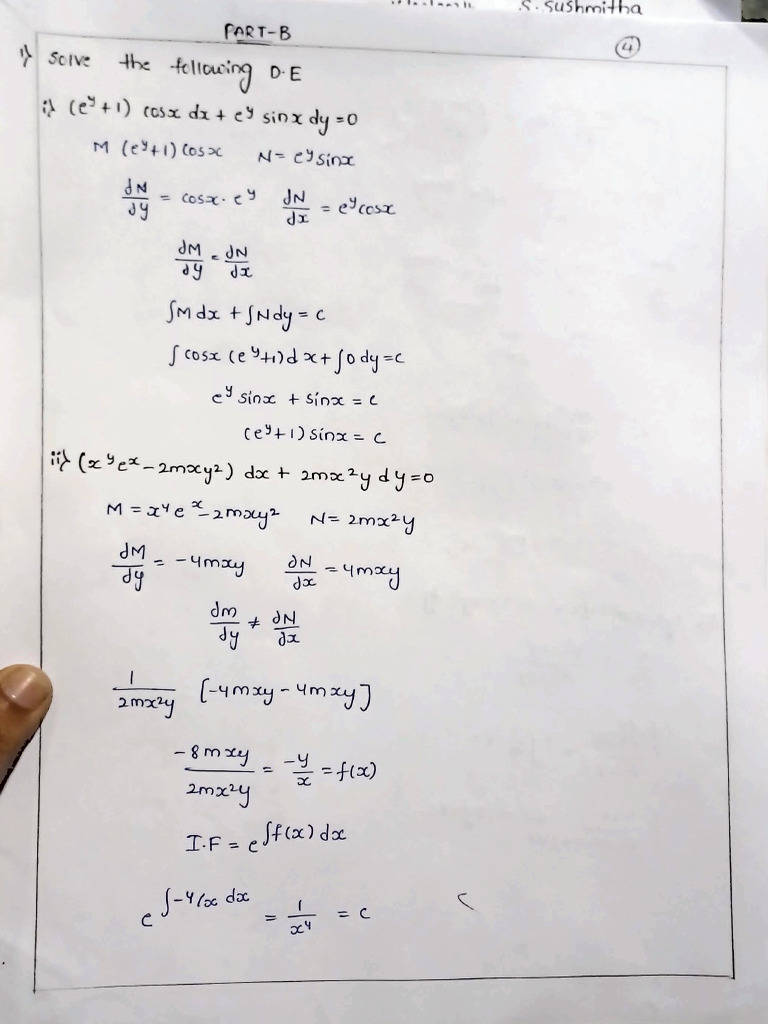 S. Sushmitha
PART-B
④
1) Solve the following D.E
i) (e^y + 1) cosx dx + e^y sinx dy = 0
M (e^y + 1) cosx N = e^y sinx
∂N/∂y = cosx · e^y ∂N/∂x = e^y cosx
∂M/∂y = ∂N/∂x
∫M dx + ∫N dy = c
∫ cosx (e^y + 1) dx + ∫0 dy = c
e^y sinx + sinx = c
(e^y + 1) sinx = c
ii) (x^y e^x - 2mxy²) dx + 2mx²y dy = 0
M = x⁴e^x - 2mxy² N = 2mx²y
∂M/∂y = -4mxy ∂N/∂x = 4mxy
∂m/∂y ≠ ∂N/∂x
1/2mx²y [-4mxy - 4mxy]
-8mxy/2mx²y = -y/x = f(x)
I.F = e^∫f(x) dx
e^∫-4/x dx = 1/x⁴ = c